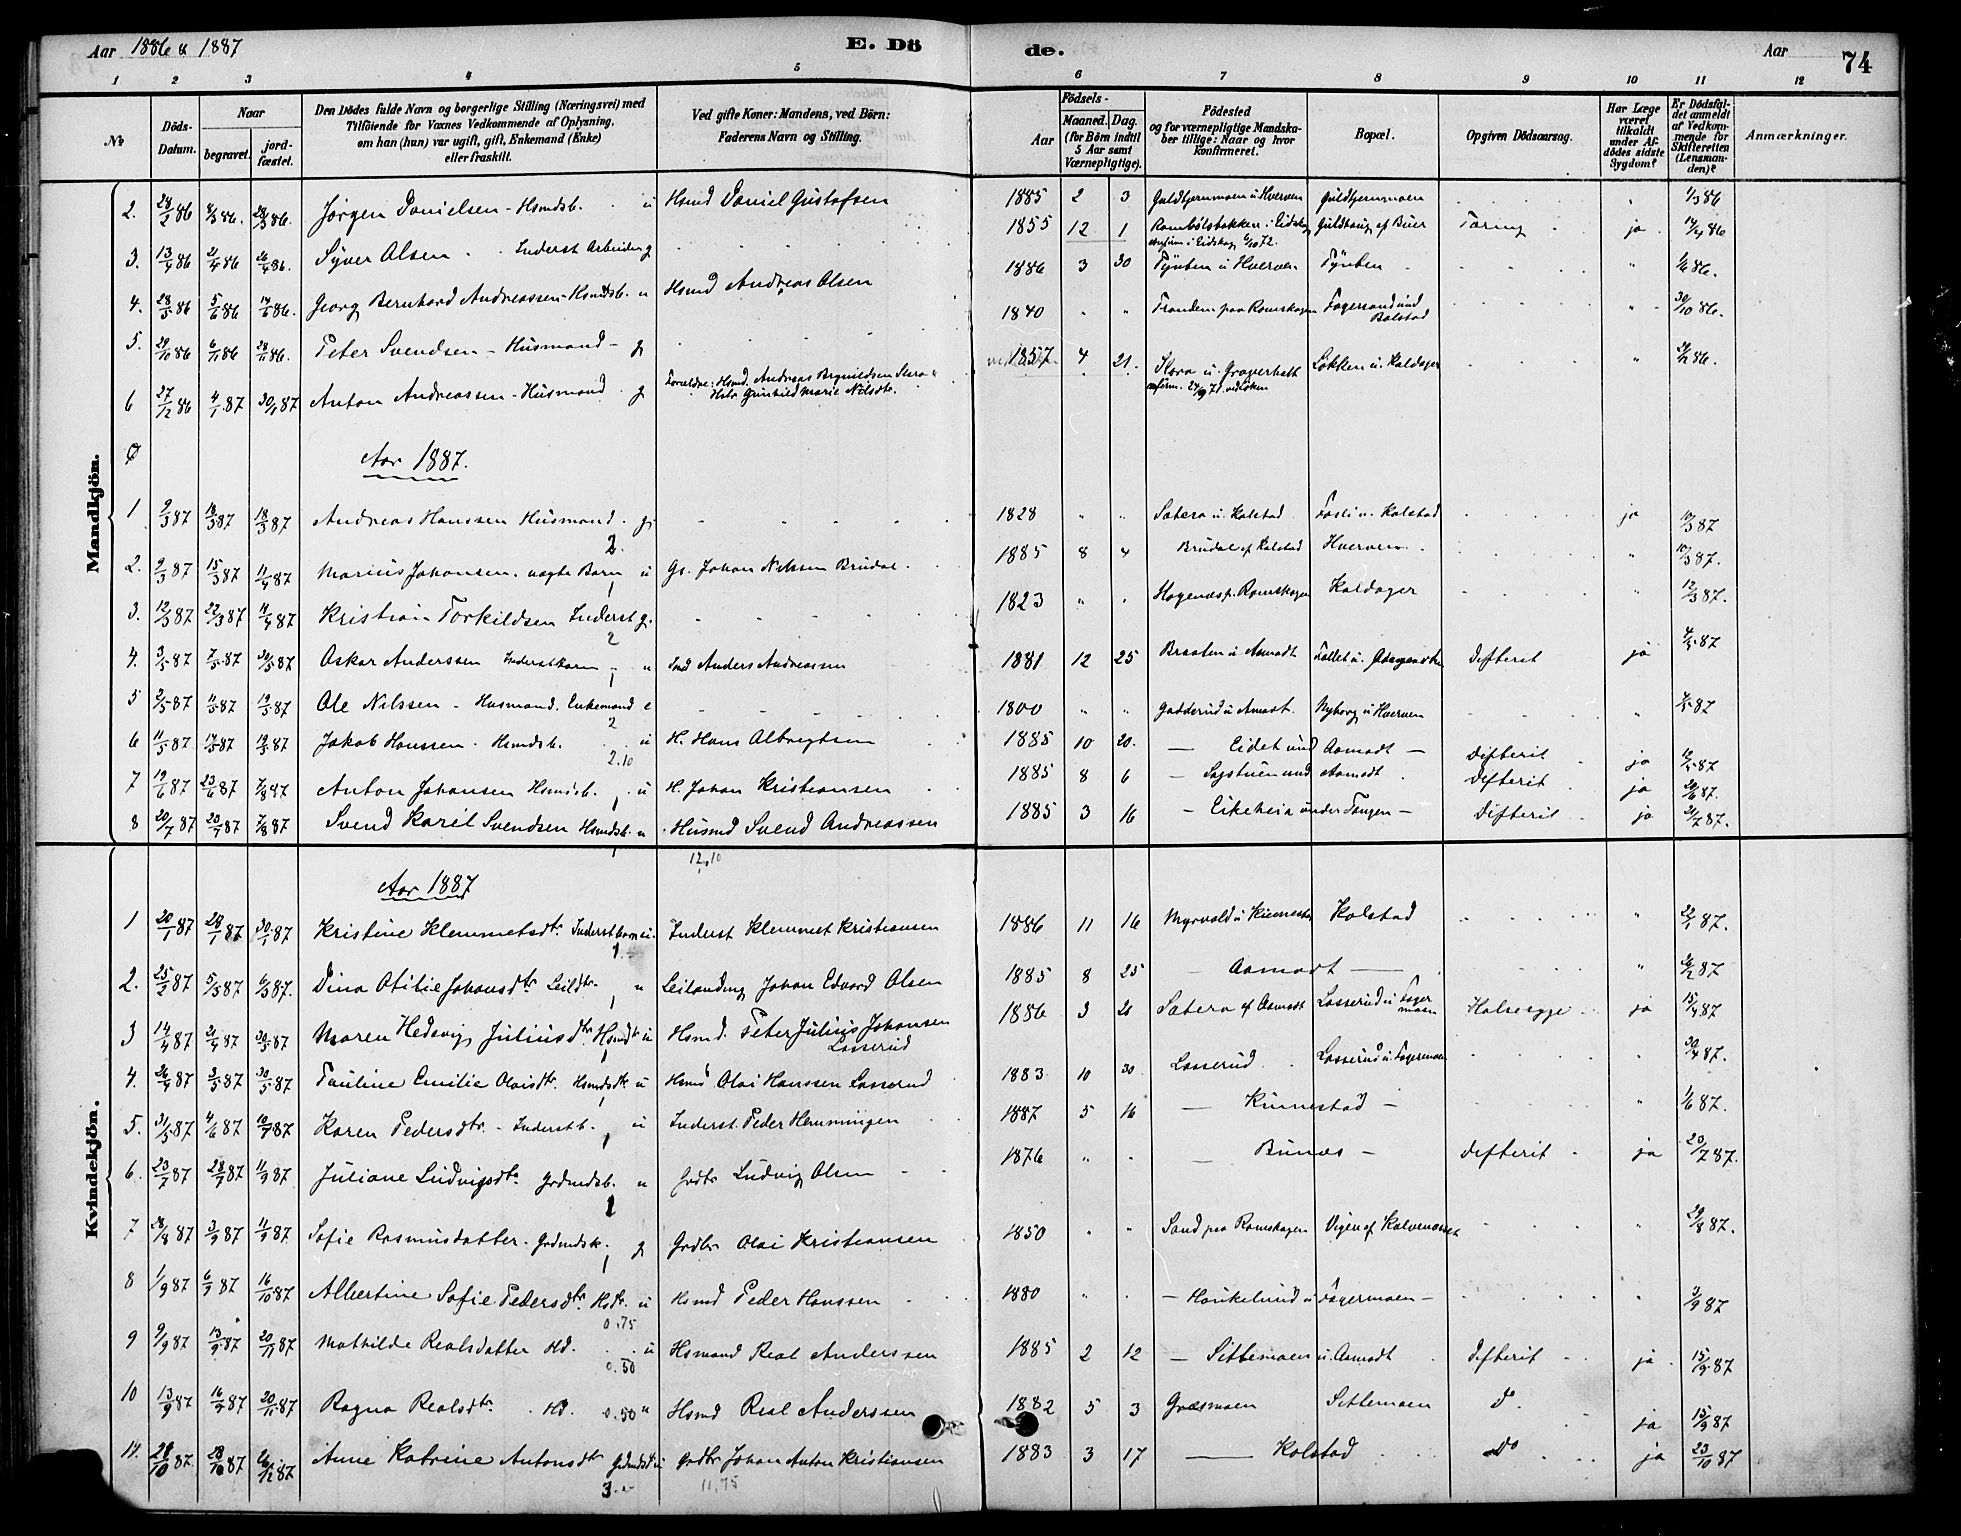 Aar 1886 & 1887 E. Dö de. Aar 74
1 2 3 4 5 6 7 8 9 10 11 12
No
Döds-Datum.
Naar
begravet.
jordfæstet.
Den Dödes fulde Navn og borgerlige Stilling (Næringsvei) med
Tilföiende for Voxnes Vedkommende af Oplysning,
om han (hun) var ugift, gift, Enkemand (Enke)
eller fraskilt.
Ved gifte Koner: Mandens, ved Börn:
Faderens Navn og Stilling.
Födsels-
Aar
Maaned. Dag.
(for Börn indtil
5 Aar samt
Værnepligtige).
Födested
og for værnepligtige Mandska-
ber tillige: Naar og hvor
konfirmeret.
Bopæl.
Opgiven Dödsaarsag.
Har Læge
været
tilkaldt
under Af-
dödes sidste
Sygdom?
Er Dödsfal-
det anmeldt
af Vedkom-
mende for
Skifteretten
(Lensman-
den)?
Anmærkninger.
Mandkjön.
2. 28/2 86 8/3 86. 28/3 86. Jörgen Danielsen - Hsmdsb. u Hsmd Daniel Gustafsen 1885 2 3 Guldtjernmoen u Hverven Guldtjernmoen 1/3 86
3. 13/4 86 21/4 86 26/4 86. Syver Olsen Inderst Arbeider g 1855 12 1 Guldhaug af Buer Tæring ja 14/4 86
i Eidskog 6/10 72.
4. 28/5 86 5/6 86 14/6 86. Georg Bernhard Andreassen Hsmdsb. u Hsmd Andreas Olsen 1886 3 30 Tÿuben u Hverven Tÿuben 1/6 86.
5. 29/10 86 6/11 86 28/11 86. Peter Svendsen - Husmand - g 1840 Tranden paa Romskogen Fagersand und Bolstad 30/10 86.
6 27/12 86 4/1 87 30/1 87 Anton Andreassen - Husmand g Forældre: Hsmd. Andreas Brynildsen
Gunhild Marie Nilsdtr. 1857 4 21. Løkken u. Kaldager 86.
konfirm. 24/9 71
Aar 1887.
1 9/3 87 18/3 87 18/3 87 Andreas Hanssen Husmand g. 1828 Sætera u. Kolstad Fosli u. Kolstad ja 12/3 87
2.
2. 9/3 87 15/3 87 11/4 87 Marius Johansen. uægte Barn u Gs. Johan Nilssen Brudal 1885 8 4 Brudal af Kolstad Hverven 10/3 87.
1
3. 12/3 87 22/3 87 11/4 87 Kristian Torkildsen Inderst g. 1823 Romskogen Kaldager 12/3 87.
2
4. 3/5 87 7/5 87 30/5 87 Oskar Anderssen Inderstbarn u Ind Anders Andreassen 1881 12 25 Braaten u Aamodt Difterit ja 4/5 87
1
5 2/5 87 11/5 87 19/5 87 Ole Nilssen - Husmand. Enkemand e 1800 Gadderud u Aamodt. Nyborg u Hverven 87
2
6 11/5 87 17/5 87 19/5 87 Jakob Hanssen. Hsmdsb. u H. Hans Albregtsen 1885 10 20. — Eidet und Aamodt — Difterit ja 12/5 87
2.10
7 19/6 87 23/6 87 7/8 87 Anton Johansen Hsmdsb. u H. Johan Kristiansen 1885 8 6 — Sagstuen und Aamodt Difterit ja 20/6 87.
8 20/7 87 20/7 87 7/8 87 Svend Karil Svendsen Hsmdsb. u Husmd Svend Andreassen 1885 3 16 — Eikeheia under Tangen — Difterit ja 21/7 87.
1 12,10
Kvindekjön.
Aar 1887
1 20/1 87 28/1 87 30/1 87 Kristine Klemmetsdtr. Inderstbarn u. Inderst Klemmet Kristiansen 1886 11 16 Myrvold u Kinnestad Kolstad 22/1 87.
1.
2. 25/2 87 5/3 87 6/3 87. Dina Otilie Johansdtr Leildtr. u Leilænding Johan Edvard Olsen 1885 8 25 — Aamodt — 26/2 87
1
3 14/4 87 21/4 87 30/5 87 Maren Hedevig Juliusdtr Hsmdtr u Hsmd. Peter Julius Johansen
Lasserud 1886 3 28 Sætera af Aamodt Lasserud u Fager
moen Halsesyge ja 15/4 87
1
4. 26/4 87 3/5 87 30/5 87 Pauline Emilie Olaisdtr. Hsmdsb. u Hsmd Olai Hanssen Lasserud 1883 10 30 Lasserud Lasserud u Fagermoen 30/4 87.
1
5. 31/5 87 4/6 87 10/7 87 Karen Pedersdtr. - Inderstb. u Inderst. Peder Hemmingen 1887 5 16 — Kinnestad — 1/6 87.
1
6. 23/7 87 28/7 87 11/9 87 Juliane Ludvigsdtr. Grdmdsb. u Grdbr Ludvig Olsen 1876 — Bunæs — Difterit ja 23/7 87.
1
7 28/8 87 3/9 87 11/9 87 Sofie Rasmusdatter. Grdmdsk. g Grdbr Olai Kristiansen 1850 Sand paa Romskogen Vigen af Kalvenæset 29/8 87.
1
8 1/9 87 6/9 87 16/10 87 Albertine Sofie Pedersdtr. Hsdtr. u Hsmd Peder Hanssen 1880 — Haukelund u Fagermoen — 3/9 87
0.75
9 9/9 87 13/9 87 20/11 87 Mathilde Realsdatter Hd. u Hsmand Real Anderssen 1885 2 12 — Sittemoen u. Aamodt Difterit ja 15/9 87
0.50
10 13/9 87 16/9 87 20/11 87 Ragna Realsdtr. Hd. 0.50 u Hsmd Real Anderssen 1882 5 3 Græsmoen Sittemoen do. ja 15/9 87
11. 28/10 87 28/10 87 26/12 87 Anne Katrine Antonsdtr Grdmdsdtr u Grdbr Johan Anton Kristiansen 1883 3 17 — Kolstad do ja 23/10 87
3. 11,75